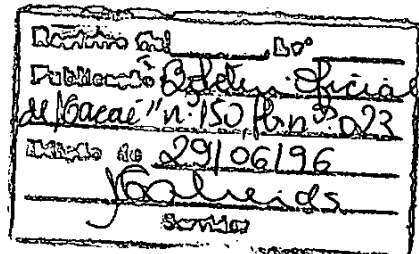 Registro Sob ______ Lvº
Publicado Boletim Oficial
de Macaé" nº 150 fl. nº: 023
Edição de 29/06/96
Servidor